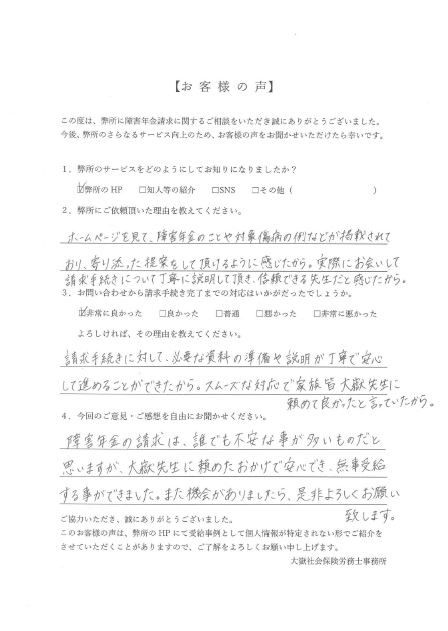 【お客様の声】
この度は、弊所に障害年金請求に関するご相談をいただき誠にありがとうございました。
今後、弊所のさらなるサービス向上のため、お客様の声をお聞かせいただけたら幸いです。
1．弊所のサービスをどのようにしてお知りになりましたか？
☑弊所のHP　□知人等の紹介　□SNS　□その他（　　　　　　）
2．弊所にご依頼頂いた理由を教えてください。
ホームページを見て、障害年金のことや対象傷病の例などが掲載されて
おり、寄り添った提案をして頂けるように感じたから。実際にお会いして
請求手続きについて丁寧に説明して頂き、信頼できる先生だと感じたから。
3．お問い合わせから請求手続き完了までの対応はいかがだったでしょうか。
☑非常に良かった　□良かった　□普通　□悪かった　□非常に悪かった
よろしければ、その理由を教えてください。
請求手続きに対して、必要な資料の準備や説明が丁寧で安心
して進めることができたから。スムーズな対応で家族皆大嶽先生に
頼めて良かったと言っていたから。
4．今回のご意見・ご感想を自由にお聞かせください。
障害年金の請求は、誰でも不安な事が多いものだと
思いますが、大嶽先生に頼めたおかげで安心でき、無事受給
する事ができました。また機会がありましたら、是非よろしくお願い
致します。
ご協力いただき、誠にありがとうございました。
このお客様の声は、弊所のHPにて受給事例として個人情報が特定されない形でご紹介を
させていただくことがありますので、ご了解をよろしくお願い申し上げます。
大嶽社会保険労務士事務所